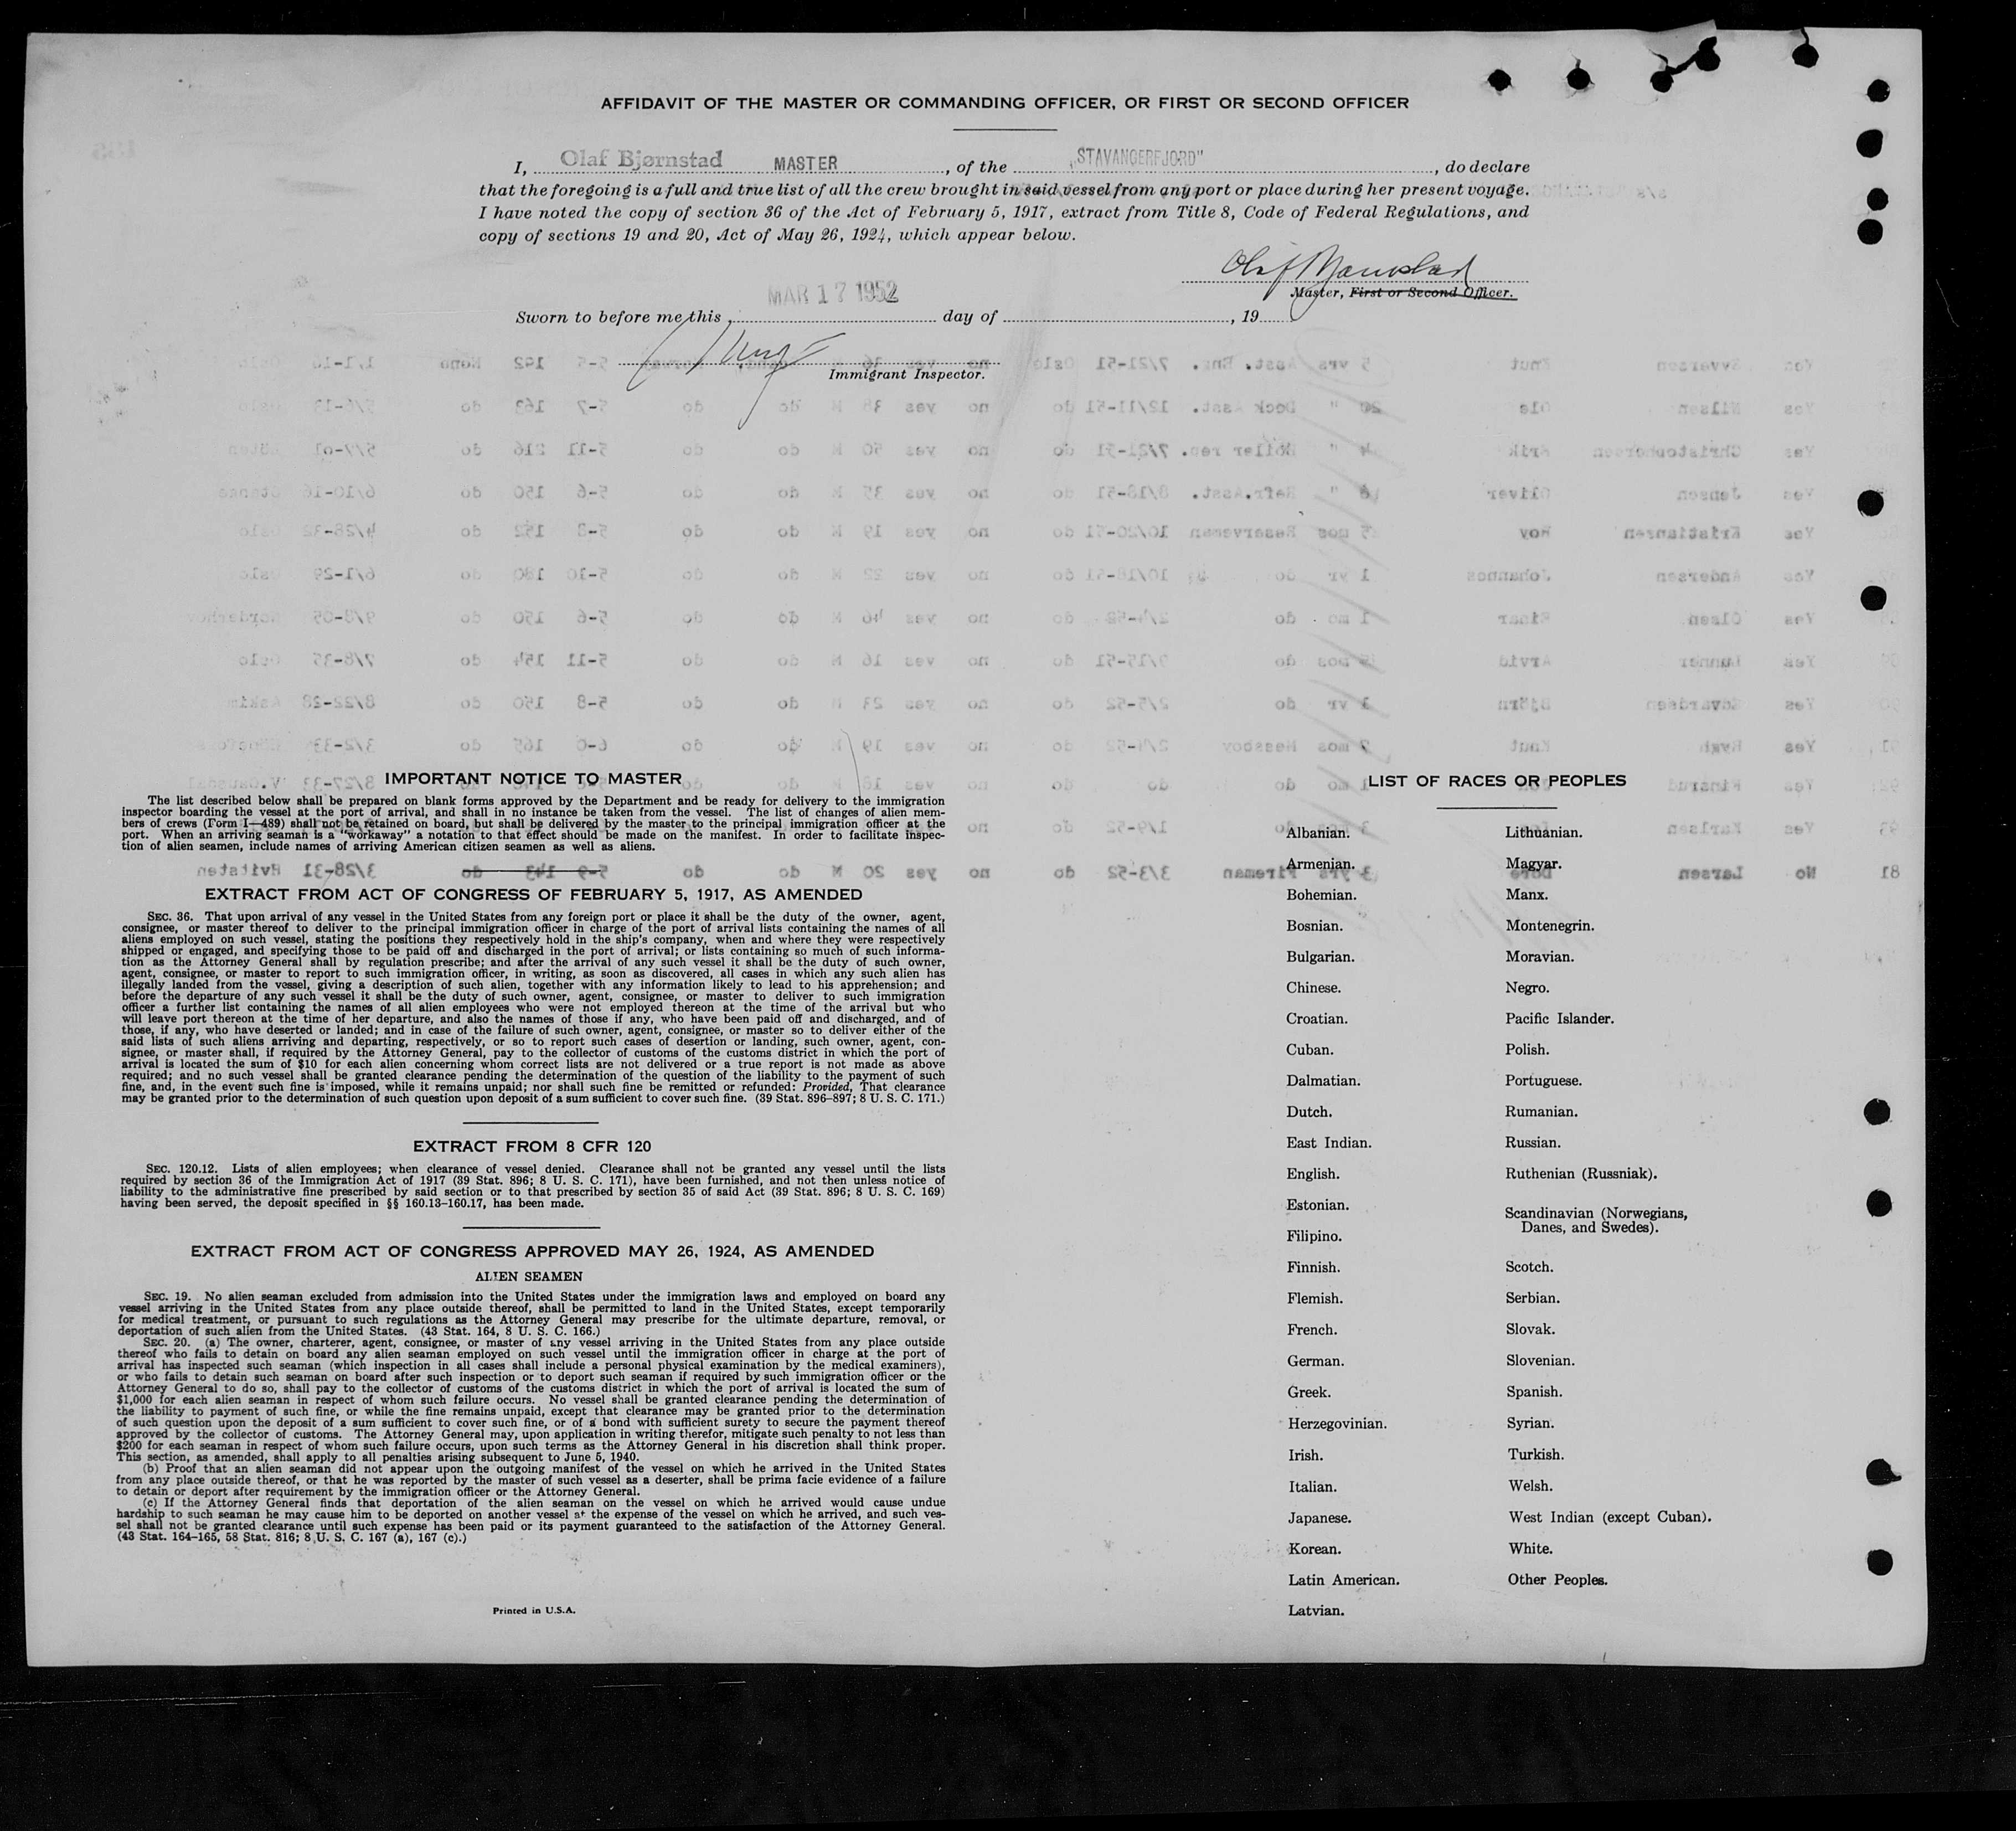 AFFIDAVIT OF THE MASTER OR COMMANDING OFFICER, OR FIRST OR SECOND OFFICER
I, Olaf Bjørnstad MASTER, of the "STAVANGERFJORD", do declare
that the foregoing is a full and true list of all the crew brought in said vessel from any port or place during her present voyage.
I have noted the copy of section 36 of the Act of February 5, 1917, extract from Title 8, Code of Federal Regulations, and
copy of sections 19 and 20, Act of May 26, 1924, which appear below.
Olaf Bjørnstad
Master, First or Second Officer.
MAR 17 1952
Sworn to before me this day of , 19
Immigrant Inspector.
IMPORTANT NOTICE TO MASTER
The list described below shall be prepared on blank forms approved by the Department and be ready for delivery to the immigration
inspector boarding the vessel at the port of arrival, and shall in no instance be taken from the vessel. The list of changes of alien mem-
bers of crews (Form I—489) shall not be retained on board, but shall be delivered by the master to the principal immigration officer at the
port. When an arriving seaman is a "workaway" a notation to that effect should be made on the manifest. In order to facilitate inspec-
tion of alien seamen, include names of arriving American citizen seamen as well as aliens.
EXTRACT FROM ACT OF CONGRESS OF FEBRUARY 5, 1917, AS AMENDED
SEC. 36. That upon arrival of any vessel in the United States from any foreign port or place it shall be the duty of the owner, agent,
consignee, or master thereof to deliver to the principal immigration officer in charge of the port of arrival lists containing the names of all
aliens employed on such vessel, stating the positions they respectively hold in the ship's company, when and where they were respectively
shipped or engaged, and specifying those to be paid off and discharged in the port of arrival; or lists containing so much of such informa-
tion as the Attorney General shall by regulation prescribe; and after the arrival of any such vessel it shall be the duty of such owner,
agent, consignee, or master to report to such immigration officer, in writing, as soon as discovered, all cases in which any such alien has
illegally landed from the vessel, giving a description of such alien, together with any information likely to lead to his apprehension; and
before the departure of any such vessel it shall be the duty of such owner, agent, consignee, or master to deliver to such immigration
officer a further list containing the names of all alien employees who were not employed thereon at the time of the arrival but who
will leave port thereon at the time of her departure, and also the names of those if any, who have been paid off and discharged, and of
those, if any, who have deserted or landed; and in case of the failure of such owner, agent, consignee, or master so to deliver either of the
said lists of such aliens arriving and departing, respectively, or so to report such cases of desertion or landing, such owner, agent, con-
signee, or master shall, if required by the Attorney General, pay to the collector of customs of the customs district in which the port of
arrival is located the sum of $10 for each alien concerning whom correct lists are not delivered or a true report is not made as above
required; and no such vessel shall be granted clearance pending the determination of the question of the liability to the payment of such
fine, and, in the event such fine is imposed, while it remains unpaid; nor shall such fine be remitted or refunded: Provided, That clearance
may be granted prior to the determination of such question upon deposit of a sum sufficient to cover such fine. (39 Stat. 896–897; 8 U. S. C. 171.)
EXTRACT FROM 8 CFR 120
SEC. 120.12. Lists of alien employees; when clearance of vessel denied. Clearance shall not be granted any vessel until the lists
required by section 36 of the Immigration Act of 1917 (39 Stat. 896; 8 U. S. C. 171), have been furnished, and not then unless notice of
liability to the administrative fine prescribed by said section or to that prescribed by section 35 of said Act (39 Stat. 896; 8 U. S. C. 169)
having been served, the deposit specified in §§ 160.13–160.17, has been made.
EXTRACT FROM ACT OF CONGRESS APPROVED MAY 26, 1924, AS AMENDED
ALIEN SEAMEN
SEC. 19. No alien seaman excluded from admission into the United States under the immigration laws and employed on board any
vessel arriving in the United States from any place outside thereof, shall be permitted to land in the United States, except temporarily
for medical treatment, or pursuant to such regulations as the Attorney General may prescribe for the ultimate departure, removal, or
deportation of such alien from the United States. (43 Stat. 164, 8 U. S. C. 166.)
SEC. 20. (a) The owner, charterer, agent, consignee, or master of any vessel arriving in the United States from any place outside
thereof who fails to detain on board any alien seaman employed on such vessel until the immigration officer in charge at the port of
arrival has inspected such seaman (which inspection in all cases shall include a personal physical examination by the medical examiners),
or who fails to detain such seaman on board after such inspection or to deport such seaman if required by such immigration officer or the
Attorney General to do so, shall pay to the collector of customs of the customs district in which the port of arrival is located the sum of
$1,000 for each alien seaman in respect of whom such failure occurs. No vessel shall be granted clearance pending the determination of
the liability to payment of such fine, or while the fine remains unpaid, except that clearance may be granted prior to the determination
of such question upon the deposit of a sum sufficient to cover such fine, or of a bond with sufficient surety to secure the payment thereof
approved by the collector of customs. The Attorney General may, upon application in writing therefor, mitigate such penalty to not less than
$200 for each seaman in respect of whom such failure occurs, upon such terms as the Attorney General in his discretion shall think proper.
This section, as amended, shall apply to all penalties arising subsequent to June 5, 1940.
(b) Proof that an alien seaman did not appear upon the outgoing manifest of the vessel on which he arrived in the United States
from any place outside thereof, or that he was reported by the master of such vessel as a deserter, shall be prima facie evidence of a failure
to detain or deport after requirement by the immigration officer or the Attorney General.
(c) If the Attorney General finds that deportation of the alien seaman on the vessel on which he arrived would cause undue
hardship to such seaman he may cause him to be deported on another vessel at the expense of the vessel on which he arrived, and such ves-
sel shall not be granted clearance until such expense has been paid or its payment guaranteed to the satisfaction of the Attorney General.
(43 Stat. 164–165, 58 Stat. 816; 8 U. S. C. 167 (a), 167 (c).)
Printed in U.S.A.
LIST OF RACES OR PEOPLES
Albanian.
Armenian.
Bohemian.
Bosnian.
Bulgarian.
Chinese.
Croatian.
Cuban.
Dalmatian.
Dutch.
East Indian.
English.
Estonian.
Filipino.
Finnish.
Flemish.
French.
German.
Greek.
Herzegovinian.
Irish.
Italian.
Japanese.
Korean.
Latin American.
Latvian.
Lithuanian.
Magyar.
Manx.
Montenegrin.
Moravian.
Negro.
Pacific Islander.
Polish.
Portuguese.
Rumanian.
Russian.
Ruthenian (Russniak).
Scandinavian (Norwegians,
Danes, and Swedes).
Scotch.
Serbian.
Slovak.
Slovenian.
Spanish.
Syrian.
Turkish.
Welsh.
West Indian (except Cuban).
White.
Other Peoples.